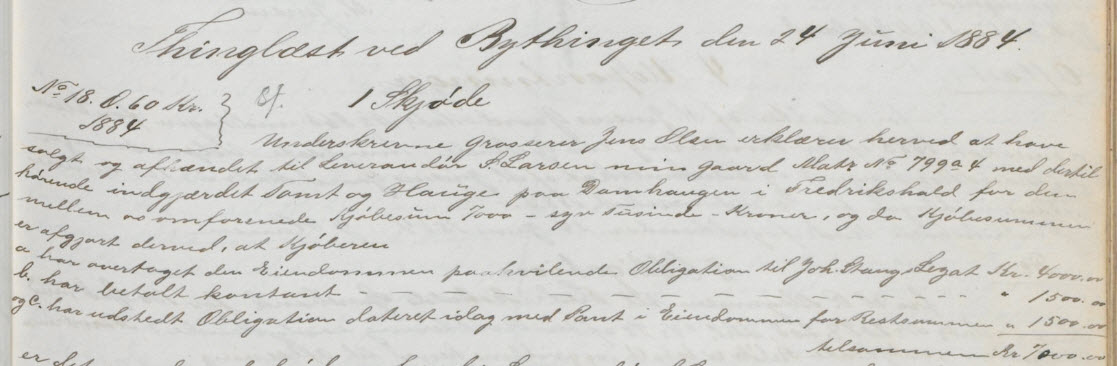 Thinglæst ved Bythinget den 24 Juni 1884.
No 18. O. 60 Kr.
1884
cf.
1 Skjøde
Underskrevne Grosserer Jens Olsen erklærer herved at have
solgt og afhændet til Leverandør A Larsen min Gaard Matr No 799a4 med dertil
hørende indgjærdet Tomt og Hauge paa Damhaugen i Fredrikshald for den
mellem os omforenede Kjøbesum 7000 - syv Tusinde - Kroner, og da Kjøbesummen
er afgjort derved, at Kjøberen
a har overtaget den Eiendommen paahvilende Obligation til Joh. Stangs Legat Kr. 4000.00
b. har betalt kontant - - - - - - - - - - - - - - - - " 1500.00
og c. har udstedt Obligation dateret idag med Pant i Eiendommen for Restsummen " 1500.00
tilsammen Kr 7000.00
er det